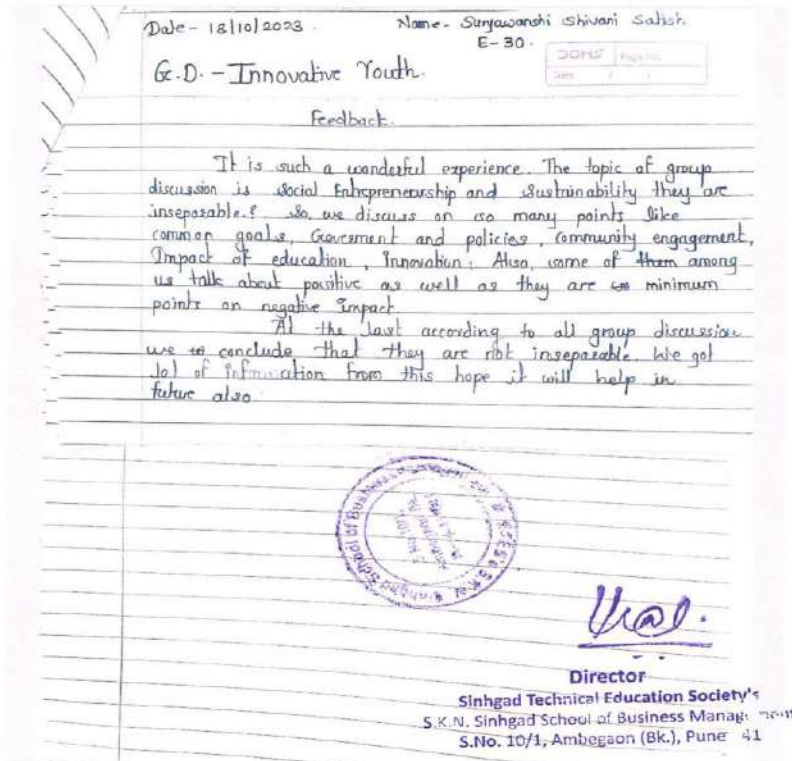 Date - 18/10/2023.
Name - Suryawanshi Shivani Satish.
E-30.
G.D. - Innovative Youth.
Feedback.
It is such a wonderful experience. The topic of group
discussion is Social Entrepreneurship and Sustainability they are
inseparable.? So, we discuss on so many points like
common goals, Goverment and policies, Community engagement,
Impact of education, Innovation. Also, some of them among
us talk about positive as well as they are minimum
points on negative impact.
At the last according to all group discussion
we conclude that they are not inseparable. We got
lot of information from this hope it will help in
future also.
Sinhgad School of Business
Director
Sinhgad Technical Education Society's
S.K.N. Sinhgad School of Business Management
S.No. 10/1, Ambegaon (Bk.), Pune 41